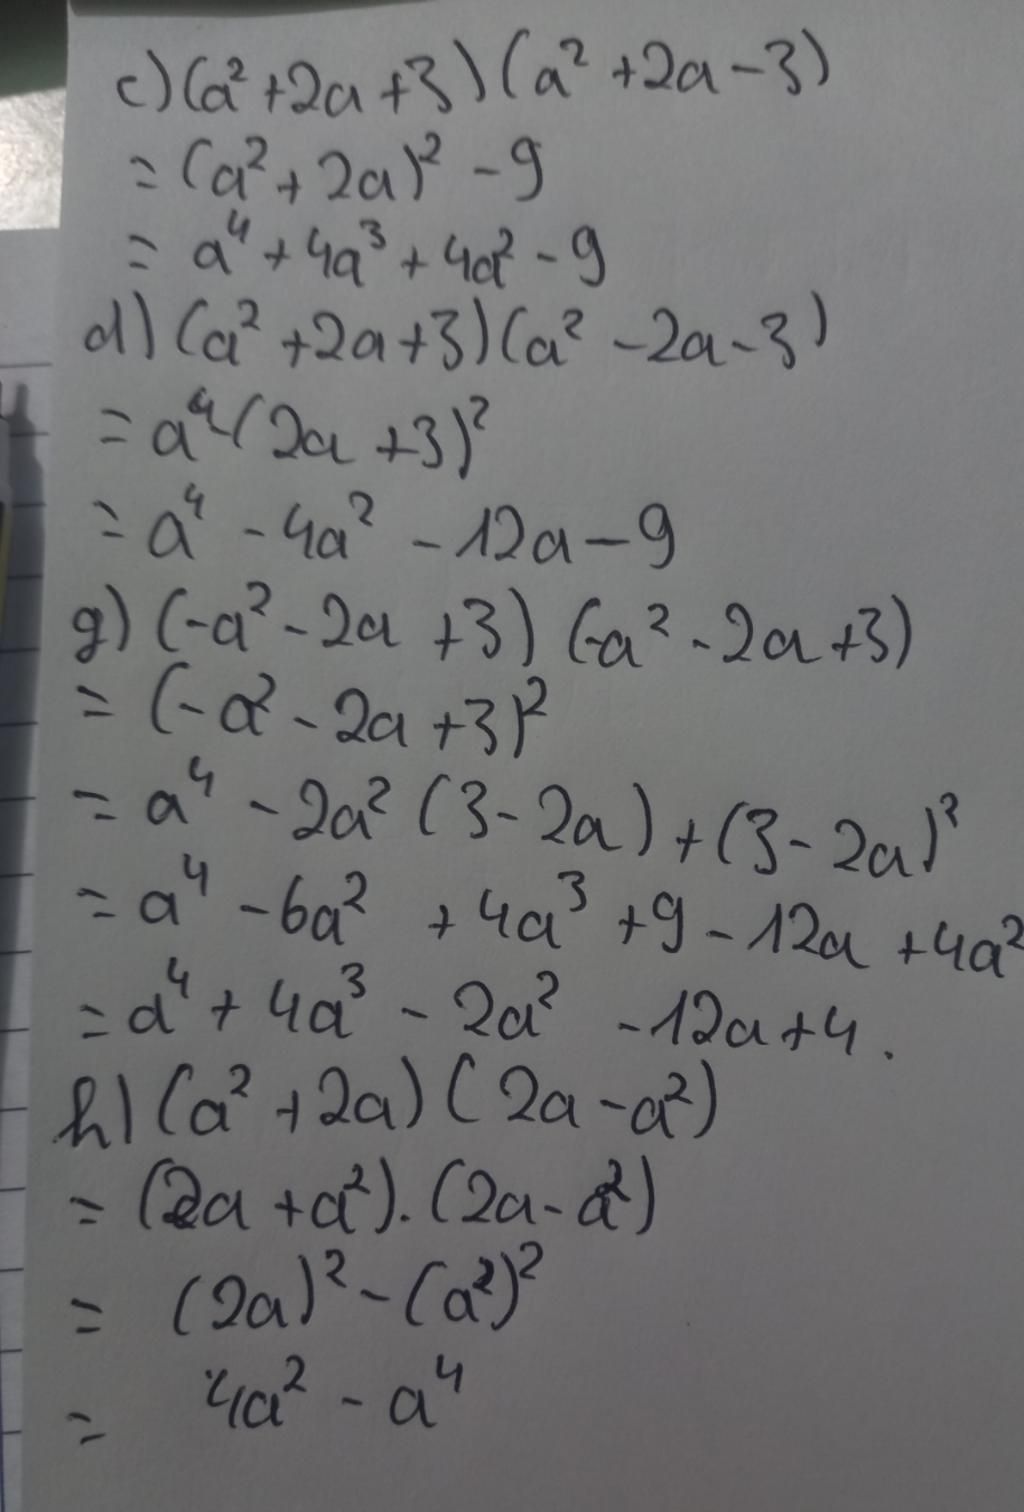 c) (a² + 2a + 3) (a² + 2a - 3)
= (a² + 2a)² - 9
= a⁴ + 4a³ + 4a² - 9
d) (a² + 2a + 3) (a² - 2a - 3)
= a⁴ - (2a + 3)²
= a⁴ - 4a² - 12a - 9
g) (-a² - 2a + 3) (-a² - 2a + 3)
= (-a² - 2a + 3)²
= a⁴ - 2a² (3 - 2a) + (3 - 2a)²
= a⁴ - 6a² + 4a³ + 9 - 12a + 4a²
= a⁴ + 4a³ - 2a² - 12a + 4.
h) (a² + 2a) (2a - a²)
= (2a + a²).(2a - a²)
= (2a)² - (a²)²
= 4a² - a⁴